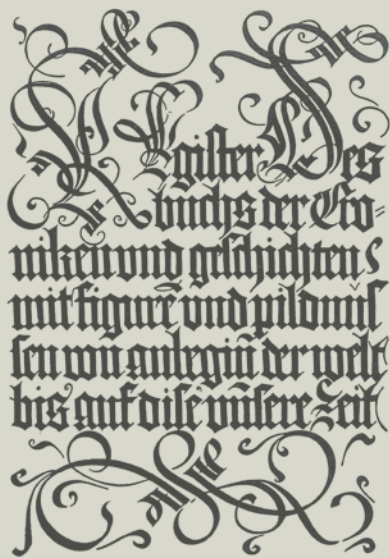 REgister Des
buchs der Cro=
niken und geschichten
mit figurē und pildnus
sen von anbegiñ der welt
bis auf dise unsere Zeit